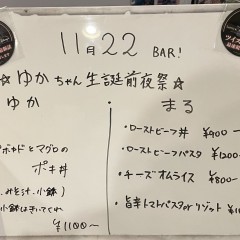 11月22 BAR!
☆ゆかちゃん生誕前夜祭☆
ゆか
アボカドとマグロの
ポキ丼
みそ汁、小鉢)
¥1100〜
まる
・ローストビーフ丼 ¥900
・ローストビーフパスタ ¥1200
・チーズオムライス ¥800
・旨辛トマトパスタorリゾット ¥10